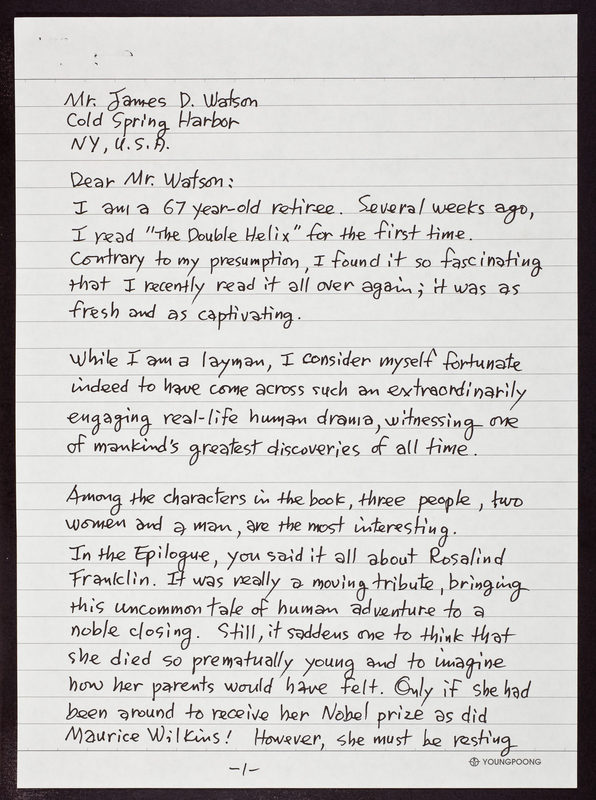 Mr. James D. Watson
Cold Spring Harbor
NY, U.S.A.
Dear Mr. Watson:
I am a 67 year-old retiree. Several weeks ago,
I read "The Double Helix" for the first time.
Contrary to my presumption, I found it so fascinating
that I recently read it all over again; it was as
fresh and as captivating.
While I am a layman, I consider myself fortunate
indeed to have come across such an extraordinarily
engaging real-life human drama, witnessing one
of mankind's greatest discoveries of all time.
Among the characters in the book, three people, two
women and a man, are the most interesting.
In the Epilogue, you said it all about Rosalind
Franklin. It was really a moving tribute, bringing
this uncommon tale of human adventure to a
noble closing. Still, it saddens one to think that
she died so prematually young and to imagine
how her parents would have felt. Only if she had
been around to receive her Nobel prize as did
Maurice Wilkins! However, she must be resting
-1-
YOUNGPOONG